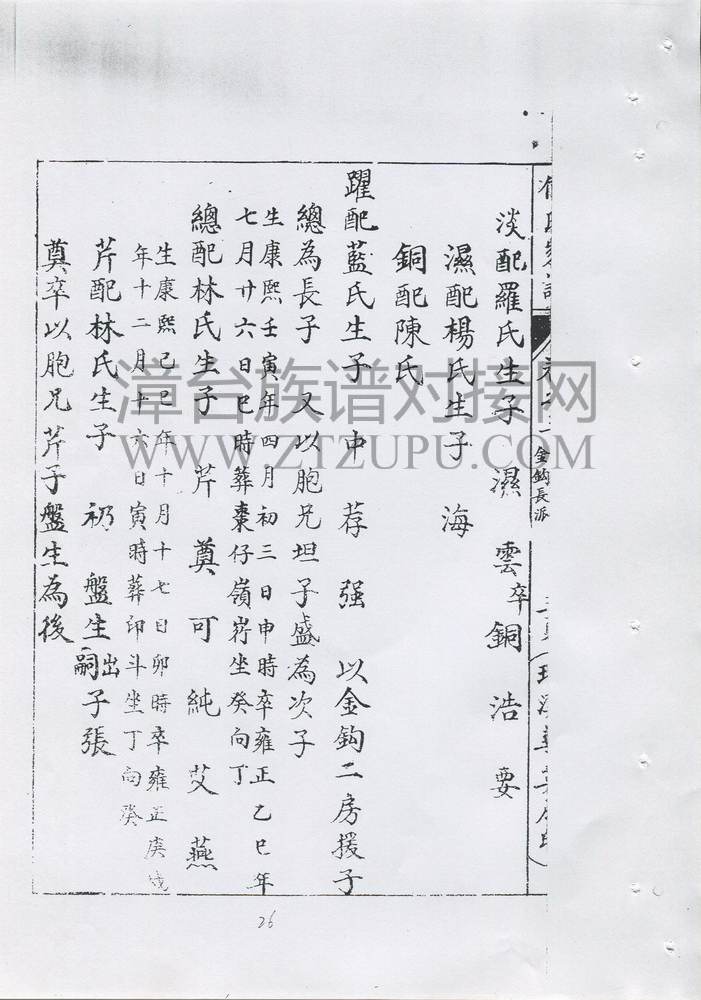 金鈎長派
淡配羅氏生子 濕 雲卒 銅 浩 要
濕配楊氏生子 海
銅配陳氏
躍配藍氏生子 中 荐 强 以金鈎二房援子
總為長子 又以胞兄坦子盛為次子
生康熙壬寅年四月初三日申時卒雍正乙巳年
七月廿六日巳時葬棗仔嶺岸坐癸向丁
總配林氏生子 芹 奠 可 純 艾 燕
生康熙己巳年十月十七日卯時卒雍正庚戌
年十二月十六日寅時葬印斗坐丁向癸
芹配林氏生子 礽 盤生出嗣 子張
奠卒以胞兄芹子盤生為後
漳台族谱对接网
WWW.ZTZUPU.COM
26